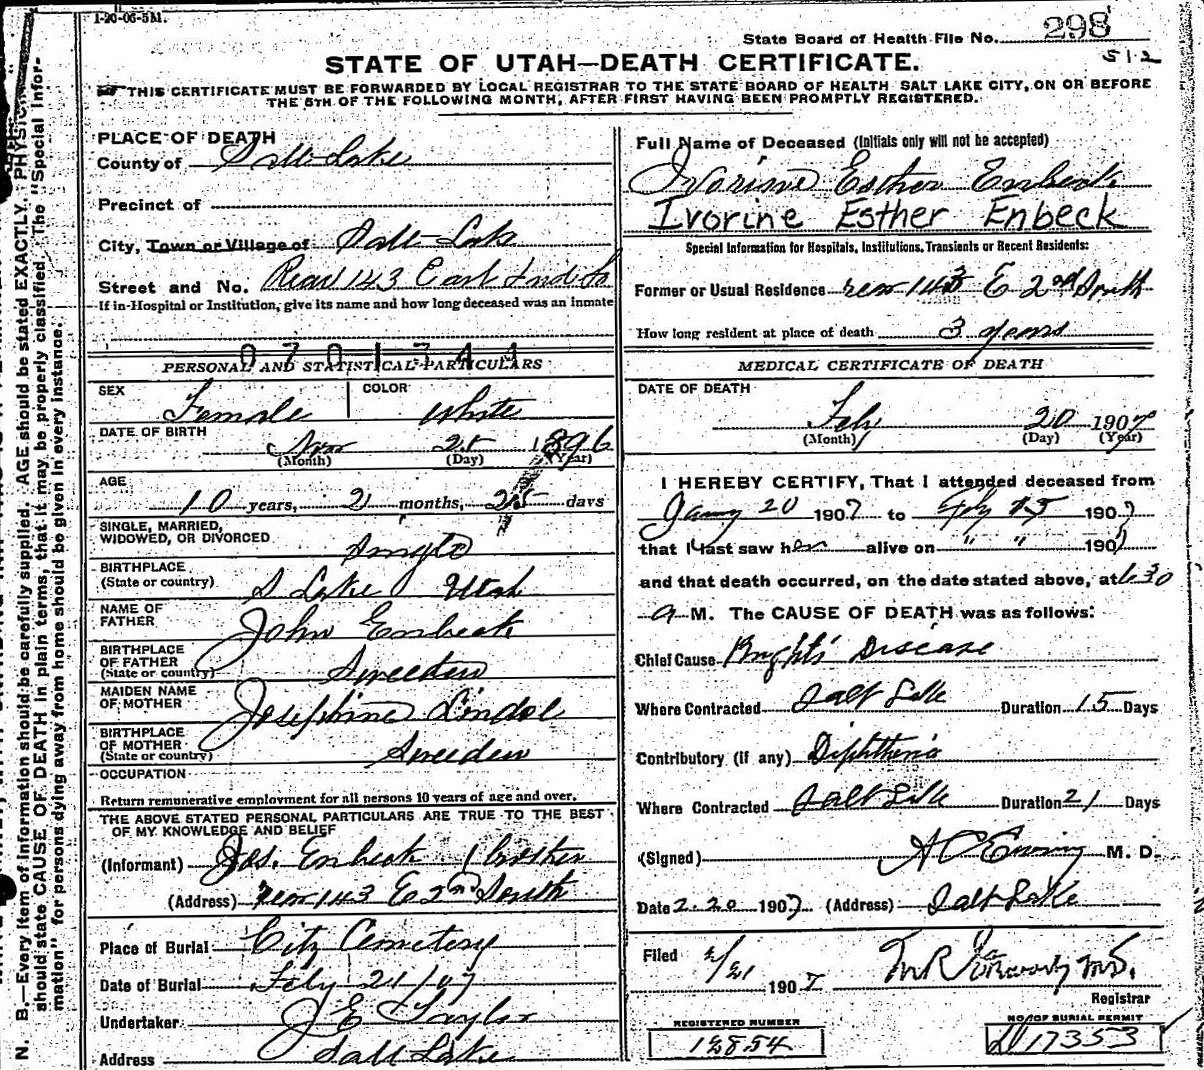 1-20-06-5M.
State Board of Health File No. 298
512
STATE OF UTAH—DEATH CERTIFICATE.
THIS CERTIFICATE MUST BE FORWARDED BY LOCAL REGISTRAR TO THE STATE BOARD OF HEALTH SALT LAKE CITY, ON OR BEFORE
THE 5TH OF THE FOLLOWING MONTH, AFTER FIRST HAVING BEEN PROMPTLY REGISTERED.
PLACE OF DEATH
County of Salt Lake
Precinct of
City, Town or Village of Salt Lake
Street and No. Rear 143 East 2nd So
If in Hospital or Institution, give its name and how long deceased was an inmate
0701344
PERSONAL AND STATISTICAL PARTICULARS
SEX Female COLOR White
DATE OF BIRTH Nov 25 1896
(Month) (Day) (Year)
AGE
10 years, 2 months, 25 days
SINGLE, MARRIED,
WIDOWED, OR DIVORCED Single
BIRTHPLACE
(State or country) S Lake Utah
NAME OF
FATHER John Enbeck
BIRTHPLACE
OF FATHER
(State or country) Sweeden
MAIDEN NAME
OF MOTHER Josephine Lindol
BIRTHPLACE
OF MOTHER
(State or country) Sweeden
OCCUPATION
Return remunerative employment for all persons 10 years of age and over.
THE ABOVE STATED PERSONAL PARTICULARS ARE TRUE TO THE BEST
OF MY KNOWLEDGE AND BELIEF
(Informant) Jos. Enbeck (brother
(Address) rear 143 E 2nd South
Place of Burial City Cemetery
Date of Burial Feby 21/07
Undertaker J E Taylor
Address Salt Lake
Full Name of Deceased (Initials only will not be accepted)
Ivorine Esther Enbeck
Ivorine Esther Enbeck
Special Information for Hospitals, Institutions, Transients or Recent Residents:
Former or Usual Residence rear 143 E 2nd South
How long resident at place of death 3 years
MEDICAL CERTIFICATE OF DEATH
DATE OF DEATH
Feby 20 1907
(Month) (Day) (Year)
I HEREBY CERTIFY, That I attended deceased from
Jany 20 1907 to Feby 15 1907
that I last saw her alive on " " 1907
and that death occurred, on the date stated above, at 6 30
a M. The CAUSE OF DEATH was as follows:
Chief Cause Brights Disease
Where Contracted Salt Lake Duration 15 Days
Contributory (if any) Diphtheria
Where Contracted Salt Lake Duration 21 Days
(Signed) M. D.
Date 2.20 1907 (Address) Salt Lake
Filed 2/21 1907
M.D.
Registrar
REGISTERED NUMBER
12854
NO. OF BURIAL PERMIT
D17353
N. B.—Every item of information should be carefully supplied. AGE should be stated EXACTLY.
should state CAUSE OF DEATH in plain terms, that it may be properly classified. The "Special Infor-
mation" for persons dying away from home should be given in every instance.